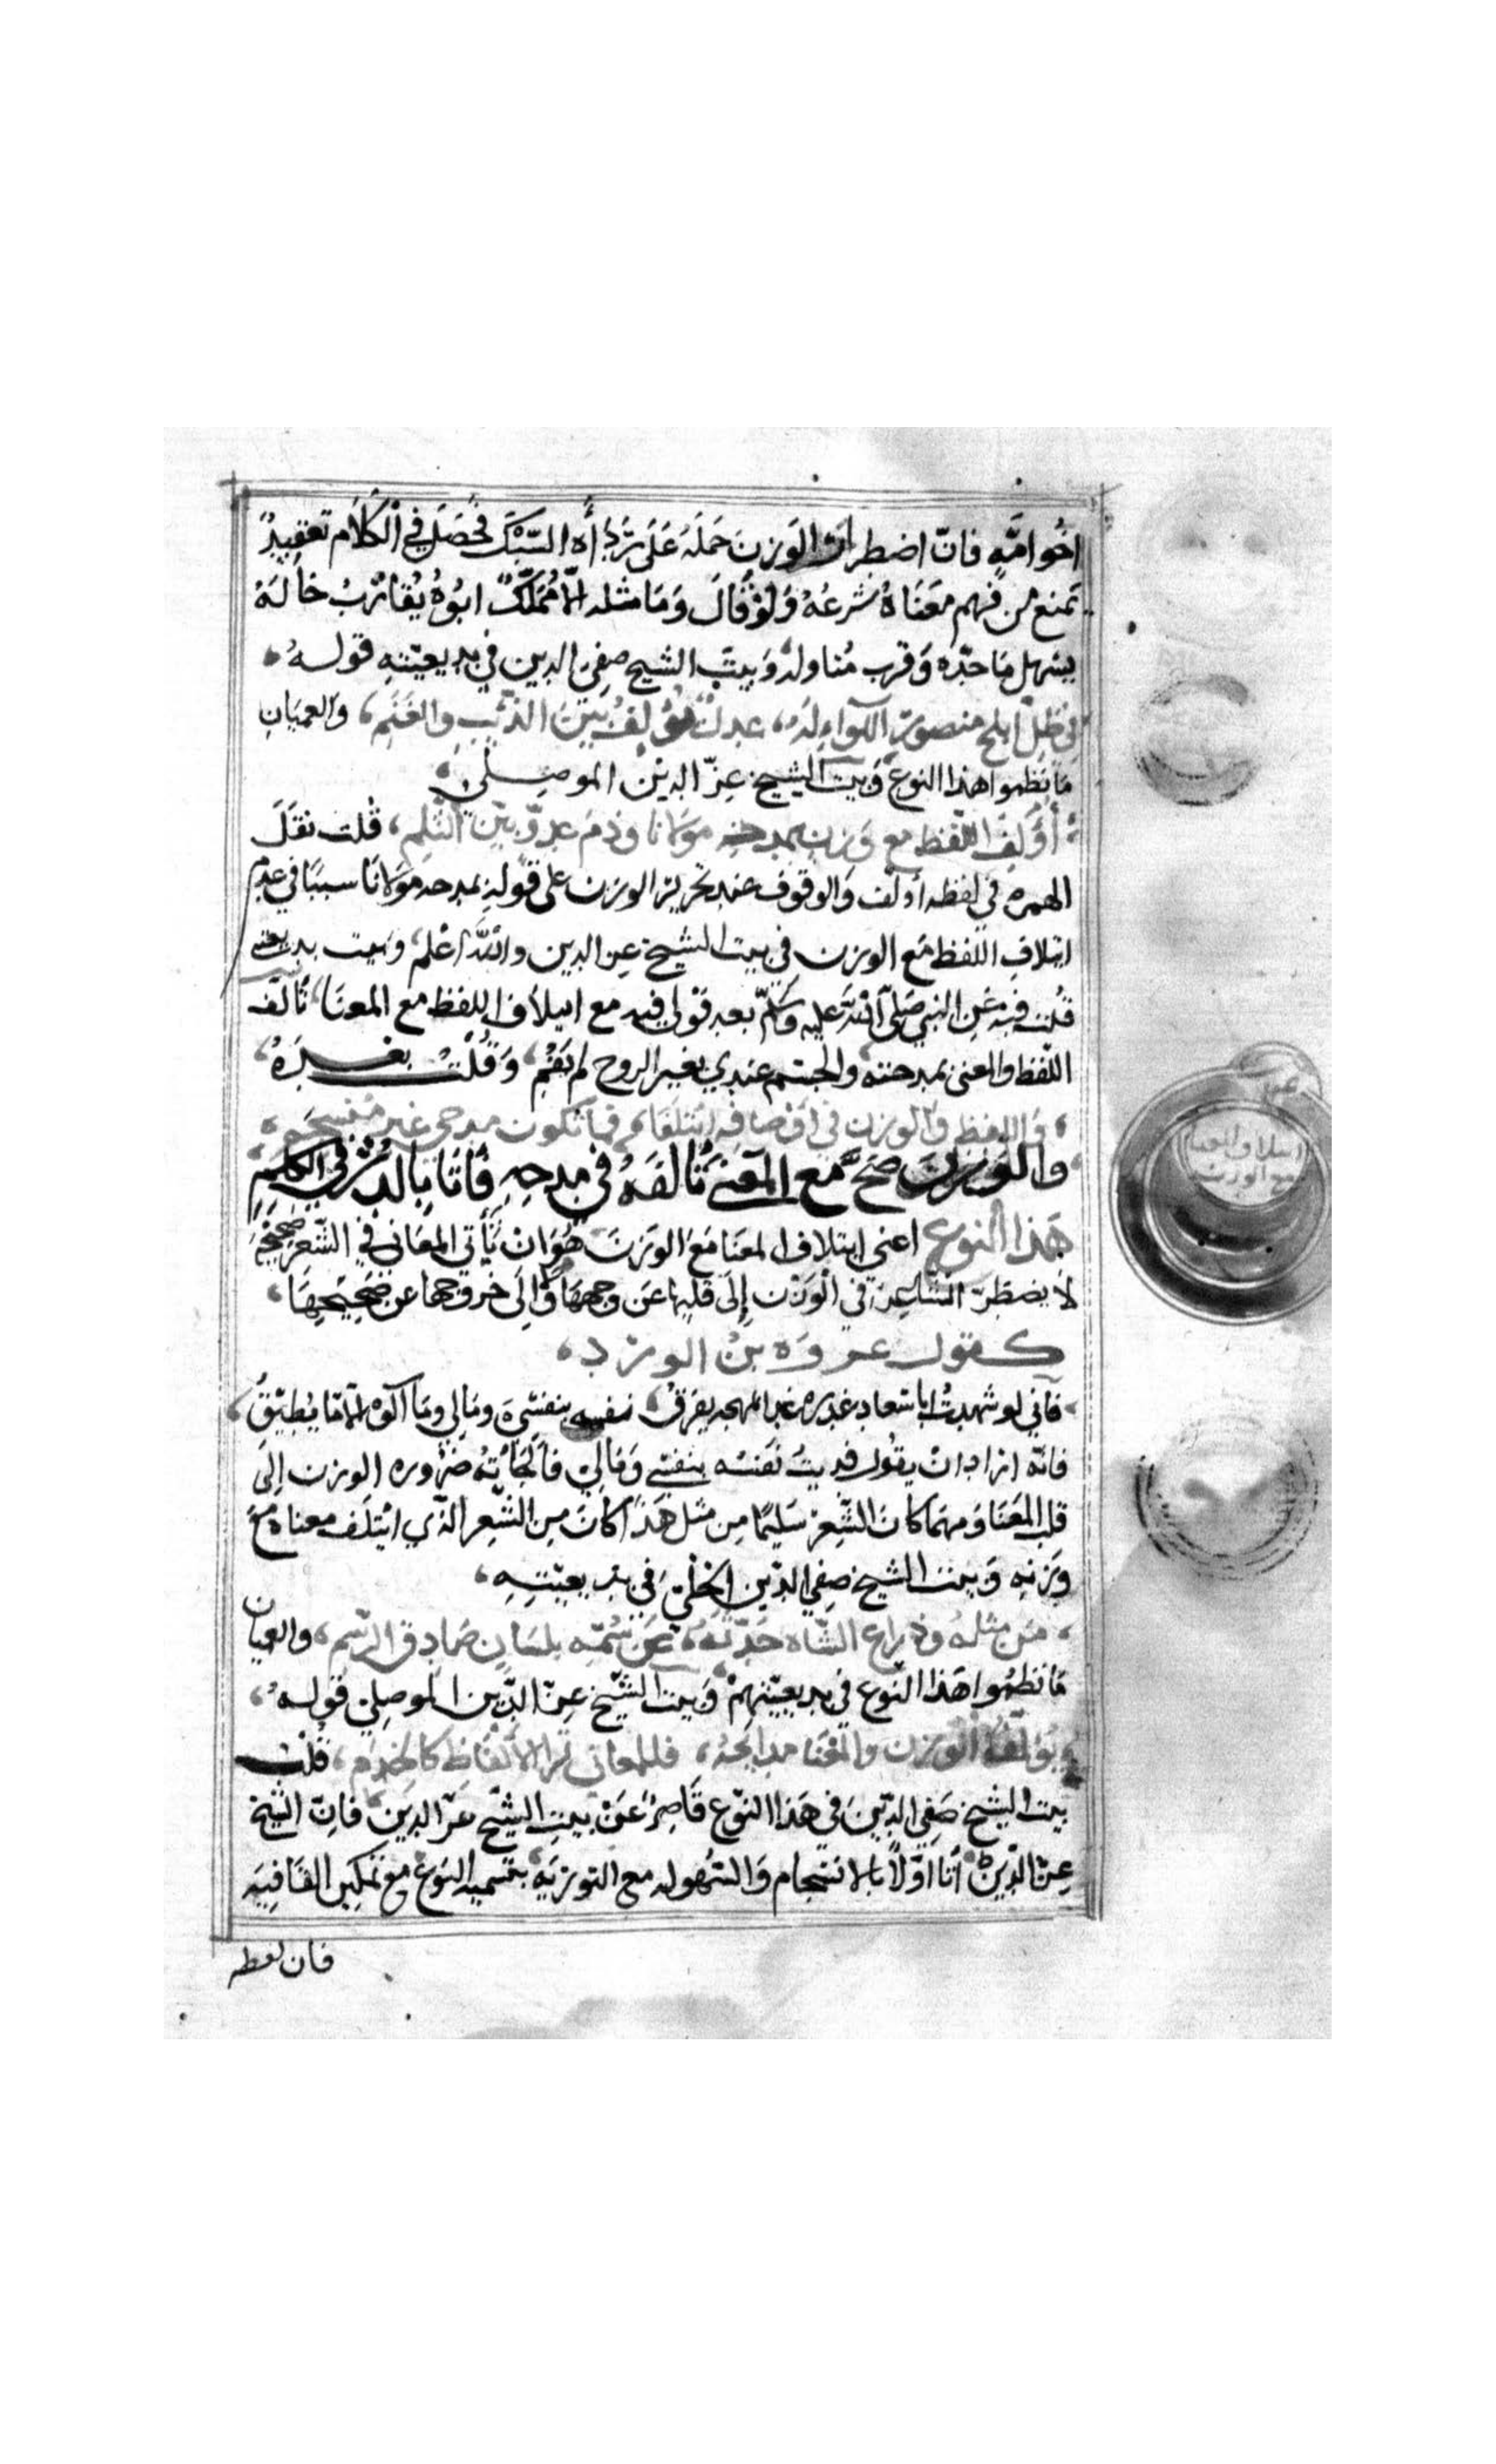 اخُو امّهِ فانّ اضطرار الوَزنَ حَمَلَهُ عَلَى رَدَاأَه السّبْكَ فَحَصَلَ في الْكَلَام تعقيدٌ
تمنع من فهم معَنَاهُ شرعُهُ وَلَوْ قَالَ وَمَا مثله الّا مُمَلَّكٌ ابُوهُ يُقَارْبُ خَالَهُ
يسهل مَا حدّه وَقرب مُناوله وَبيتَ الشيح صفى الدين في بديعيّتهِ قولهُ،
في ظلّ ابلج منصورِ اللّوآءِ لَهُ، عدلٌ يؤلفُ بينَ الذّيبِ والغَنَمِ، والعميَانِ
مَا نظموا هذا النوع وَبيت الشيخ عزّ الدين الموصلي،
أُوَلِفُ اللّفظ مع وَزنٍ بمدحه مولانا وذمَ عدوٍّ بيّن الثّلِم، قلت نقلَ
الهمزه في لفظه أولف وَالوقوف عند تحرير الوزن على قولهِ بمدحه موَلانَا سببَا في عدم
ايتلافِ اللفظ مَع الوَزن في بيت الشيخ عز الدين واللّٰه اعْلم، وبيت بديعيتى
قُلت فيهِ عَن النبي صَلى اللّٰه عليه وَسَلّم بعد قولي فيه مع ايتلاف اللفظ مع المعنَا، تألّف
اللّفظ والمعنى بمدحته، والجسم عندي بغير الروح لم يقُمِ، وَقُلْتُ بعْدَهُ،
، وَاللفظ وَالوزن في اوْصافه ائتلفَا، فما تكون مدحي غير منسجم،
وَالْوَزنَ صَحَّ مَع المعَنى تَألفَهُ في مدحِهِ فأتَا بالدُرّ في الكَلِمِ
هَذا النّوع اعني ايتلاف المعنَا مَعَ الوَزنَ هُوَ ان تَأتى المعَاني في الشّعر صَحيْحَهَ
لاَ يضطرّ الشاعِر في الْوَزْن إلَى قلبها عَن وجهِهَا وَالَى خرُوجها عن صَحِيْحِهَا،
كقول عروَه بن الوردِ،
، فاني لو شهدتُ ابا سعاد غداه غد المهجه يفرقُ، نفسه بنفسى وَمالي وَما آلوه الّا ما يُطِيْقُ،
فانّه اراد ان يقُول فديتُ نفسُه بنفسي وَمَالي فألجأتهُ ضَرُوره الوزن الى
قلب المعَنا وَمهمَا كانَ الشّعِرُ سَليمًا من مثل هَذَا كانَ من الشّعر الذّي ايْتلَف معناه مَعَ
وَزنِهِ وَبيت الشيخ صفي الدّين الحليّ في بديعيّتهِ،
، مَن مثلهُ وَذراع الشّاه حَدّثَهُ، عَن سُمّهِ بلسَانٍ صَادِقِ الرّنم، والعميان
مَا نظموا هَذا النّوع في بديعيّتهم، وَبيت الشّيخ عِزّ الدّين الموصلي قولهُ،
، يؤلّفُ الوَزنَ والمعْنَا مدايحهُ، فللمعاني ترا الألفاظ كالخدم، قلت
بيت الشيخ صَفي الدّين في هَذا النّوع قَاصِرٌ عَنْ بيتِ الشيّخ عزّ الدين، فانّ الشيّخ
عزّ الدّين أتا اوّلاً بالانسجام وَالسُهوله مع التوريَه، بتسميه النوعُ مع تمكين القافيَه
فان لفظه
ايتلاف المعنا
مع الوزن